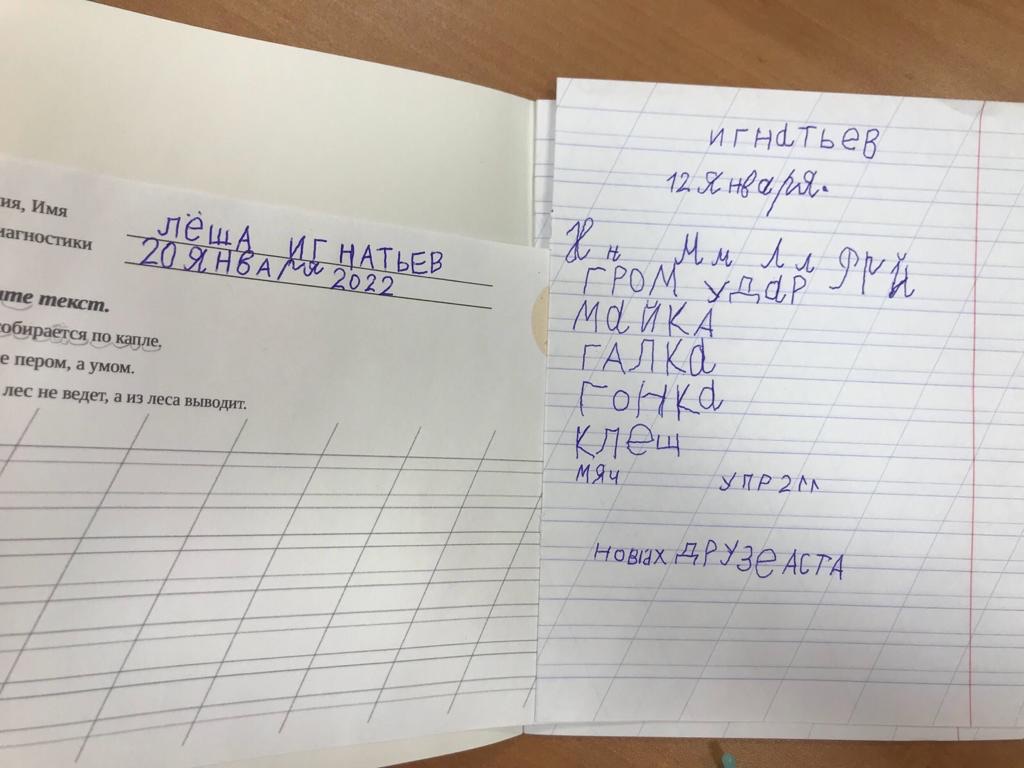 ия, Имя
ЛЁША ИГНАТЬЕВ
иагностики
20 ЯНВАРЯ 2022
ите текст.
собирается по капле,
е пером, а умом.
лес не ведет, а из леса выводит.
игнатьев
12 января.
Н н М м Л л Р Й
ГРОМ УДаР
МаЙКА
ГАЛКа
ГоНКа
КЛещ
мяч упр 2
новых ДРУЗеАСТА